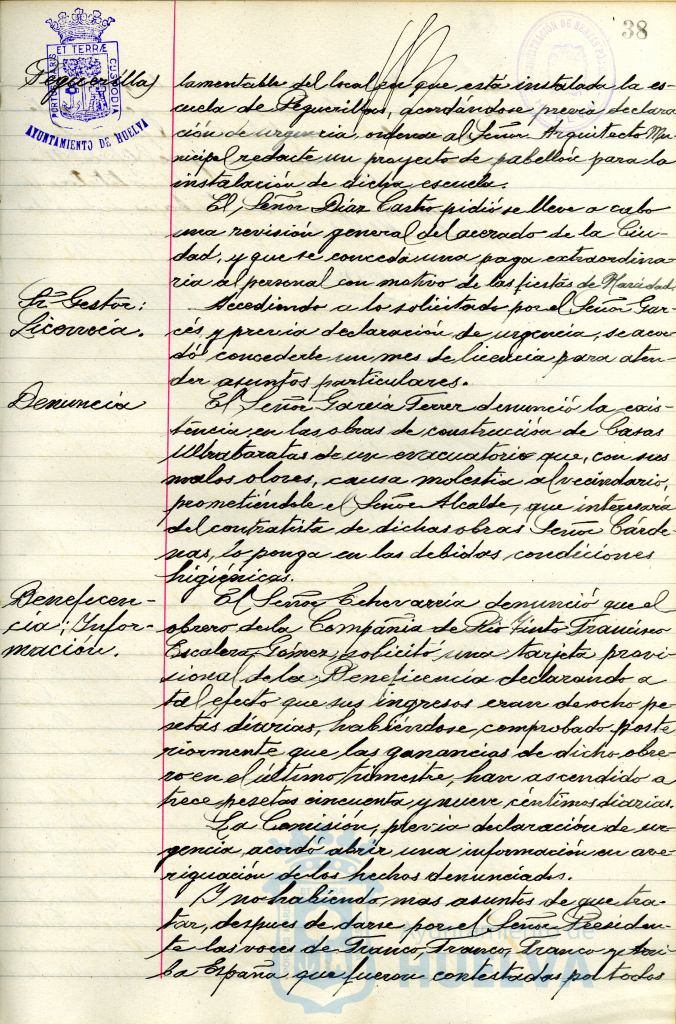 38
PORTUS MARIS ET TERRÆ CUSTODIA
AYUNTAMIENTO DE HUELVA
Peguerillas
lamentable del local en que está instalada la es-
cuela de Peguerillas, acordándose, previa declara-
ción de urgencia, ordene al Señor Arquitecto Mu-
nicipal redacte un proyecto de pabellón para la
instalación de dicha escuela.
El Señor Díaz Castro pidió se lleve a cabo
una revisión general del acerado de la Ciu-
dad, y que se conceda una paga extraordina-
ria al personal con motivo de las fiestas de Navidad.
Sr. Gestor:
Licencia.
Accediendo a lo solicitado por el Señor Gar-
cés y previa declaración de urgencia, se acor-
dó concederle un mes de licencia para aten-
der asuntos particulares.
Denuncia
El Señor García Ferrer denunció la exis-
tencia en las obras de construcción de Casas
Ultrabaratas de un evacuatorio que, con sus
malos olores, causa molestia al vecindario,
prometiéndole el Señor Alcalde, que interesaría
del contratista de dichas obras Señor Cárde-
nas, lo ponga en las debidas condiciones
higiénicas.
Beneficen-
cia: Infor-
mación.
El Señor Echevarría denunció que el
obrero de la Compañía de Rio Tinto Francisco
Escalera Gómez, solicitó una tarjeta provi-
sional de la Beneficencia declarando a
tal efecto que sus ingresos eran de ocho pe-
setas diarias, habiéndose comprobado poste-
riormente que las ganancias de dicho obre-
ro en el último trimestre, han ascendido a
trece pesetas cincuenta y nueve céntimos diarias.
La Comisión, previa declaración de ur-
gencia acordó abrir una información en ave-
riguación de los hechos denunciados.
Y no habiendo mas asuntos de que tra-
tar, despues de darse por el Señor Presiden-
te las voces de Franco, Franco, Franco y Arri-
ba España que fueron contestadas por todos
Ayuntamiento de
HUELVA